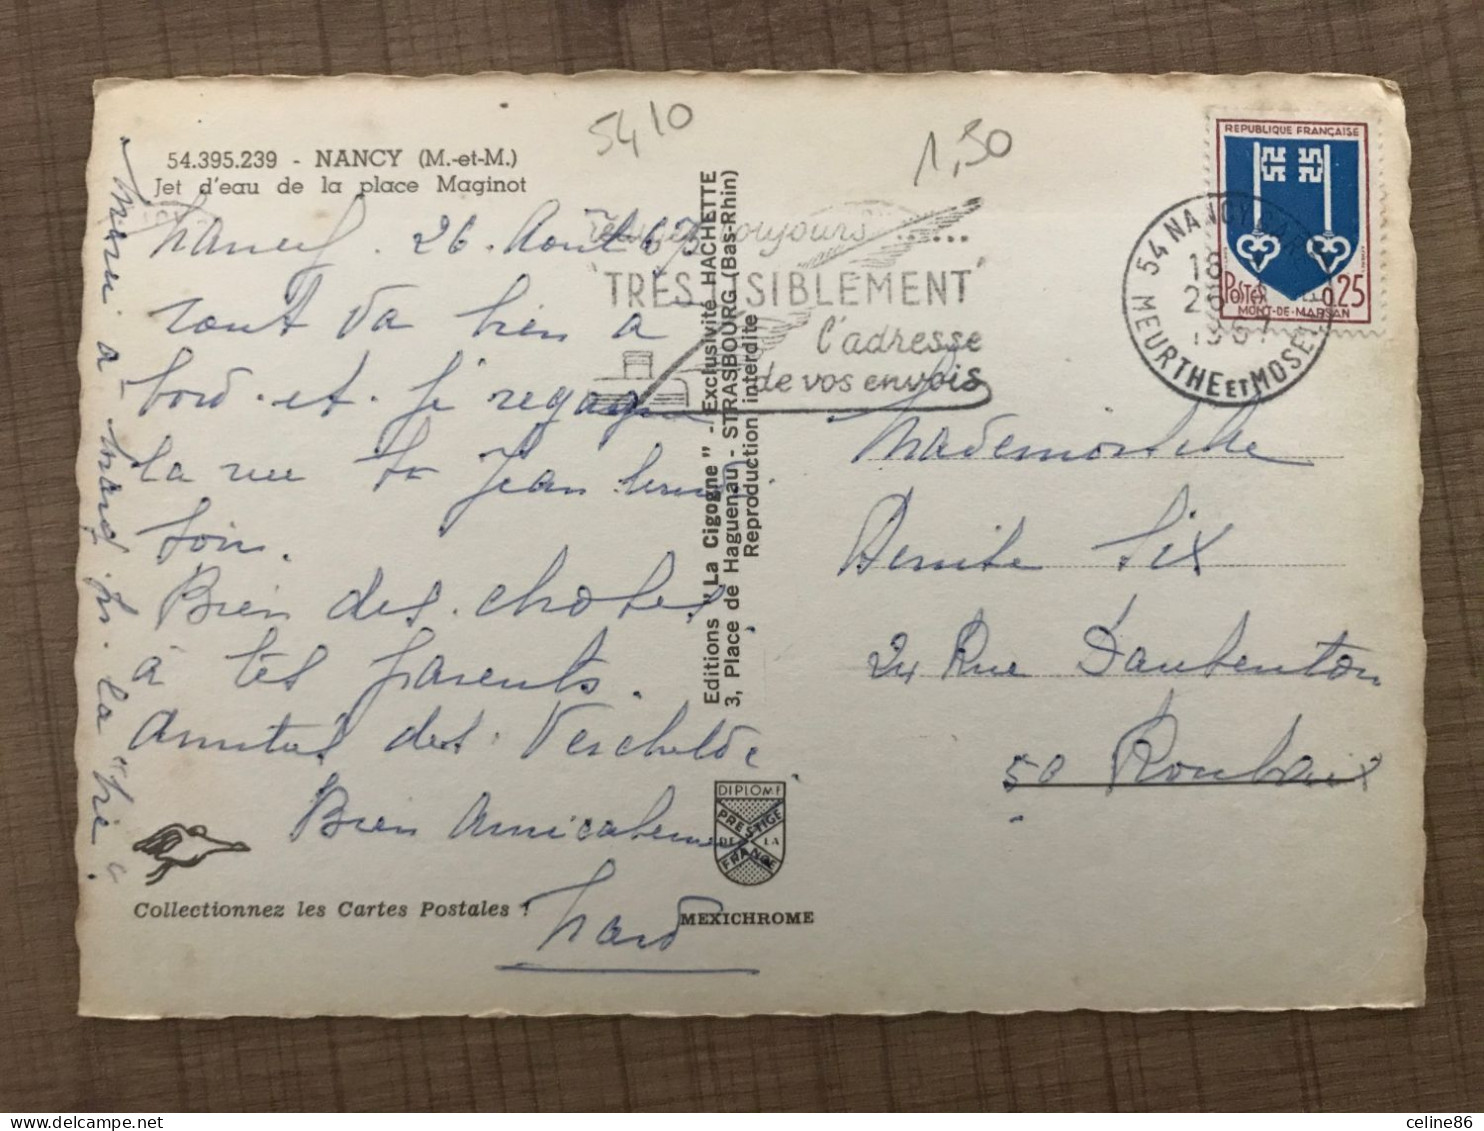 5410
1,50
54.395.239 - NANCY (M.-et-M.)
Jet d'eau de la place Maginot
Nancy. 26. Aout 67
tout va bien à
bord. et. je regagne
la rue St Jean
soin.
Bien des. choses
à tes parents.
Amitiés des. Verschelde
Bien Amicalement
Merci à
la
Collectionnez les Cartes Postales !
Editions "La Cigogne" - Exclusivité HACHETTE
3, Place de Haguenau - STRASBOURG (Bas-Rhin)
Reproduction interdite
DIPLOME
PRESTIGE
DE LA
FRANCE
MEXICHROME
toujours ......
TRÈS LISIBLEMENT
l'adresse
de vos envois
54 NANCY GARE
18
26
1967
MEURTHE ET MOSELLE
REPUBLIQUE FRANÇAISE
POSTES
0,25
MONT-DE-MARSAN
Mademoiselle
Denise Six
24 Rue Daubenton
59 Roubaix
celine86